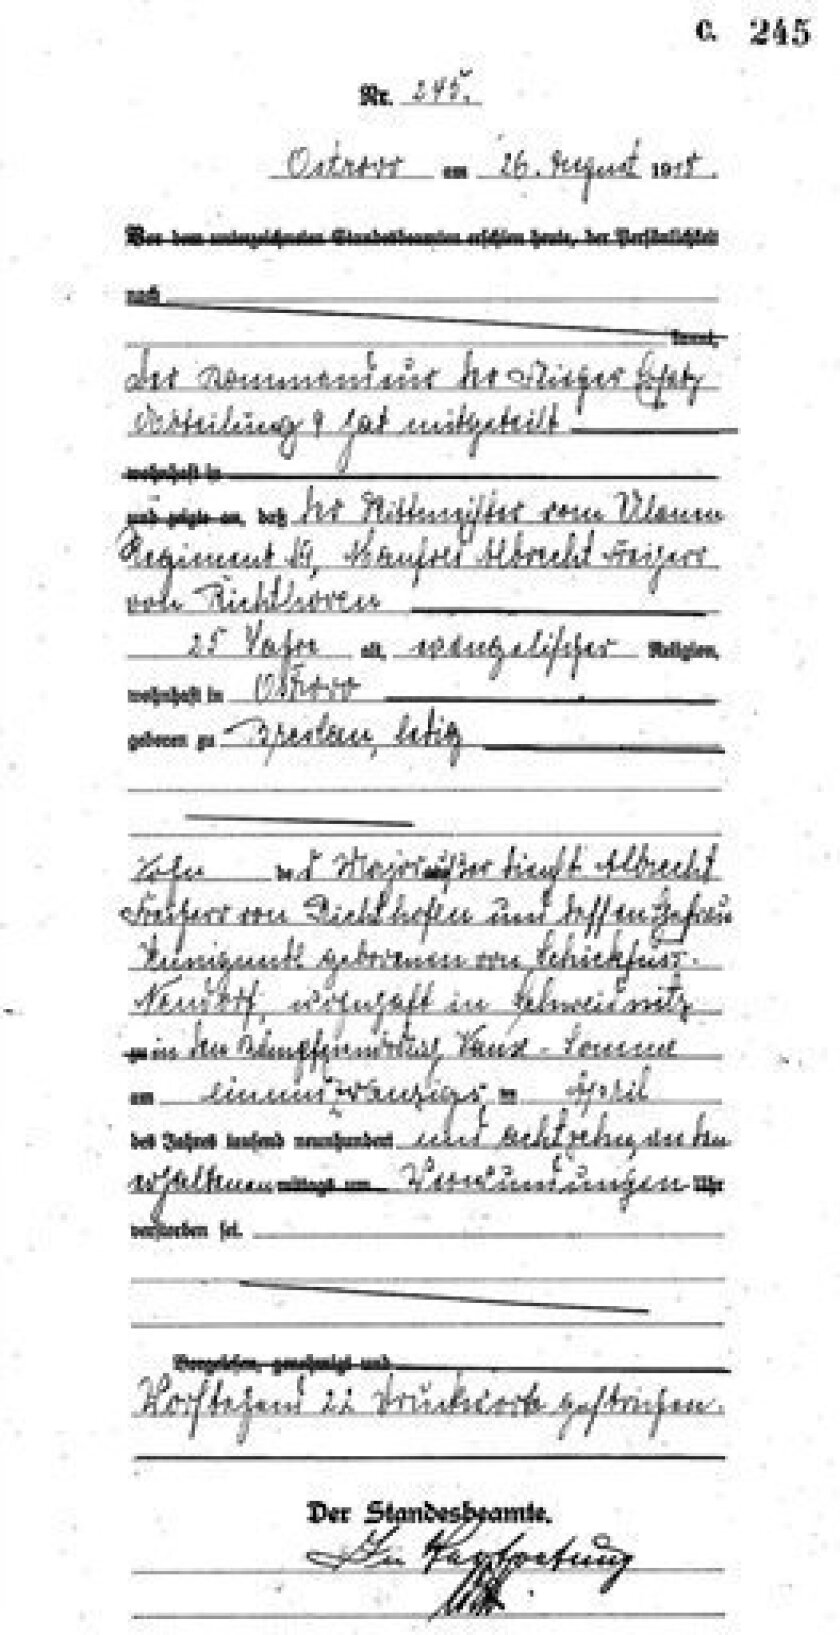 C. 245
Nr. 245.
Ostrowo am 26. August 1918.
Vor dem unterzeichneten Standesbeamten erschien heute, der Persönlichkeit
nach
kannt,
Der Kommandeur der Flieger Ersatz
Abteilung 9 hat mitgeteilt
wohnhaft in
und zeigte an, daß der Rittmeister vom Ulanen
Regiment Manfred Albrecht Freiherr
von Richthoven
25 Jahre alt, evangelischer Religion,
wohnhaft in Ostrowo
geboren zu Breslau, ledig
Sohn des Major außer dienst Albrecht
Freiherr von Richthofen und dessen Ehefrau
Kunigunde geborenen von Schickfuss-
Neudorf, wohnhaft in Schweidnitz
zu in den Vaux - Somme
am einundzwanzigs ten April
des Jahres tausend neunhundert und achtzehn, an den
erhaltenen mittags um Verwundungen Uhr
verstorben sei.
Vorgelesen, genehmigt und
Vorstehend 22 Druckworte gestrichen.
Der Standesbeamte.
In Vertretung